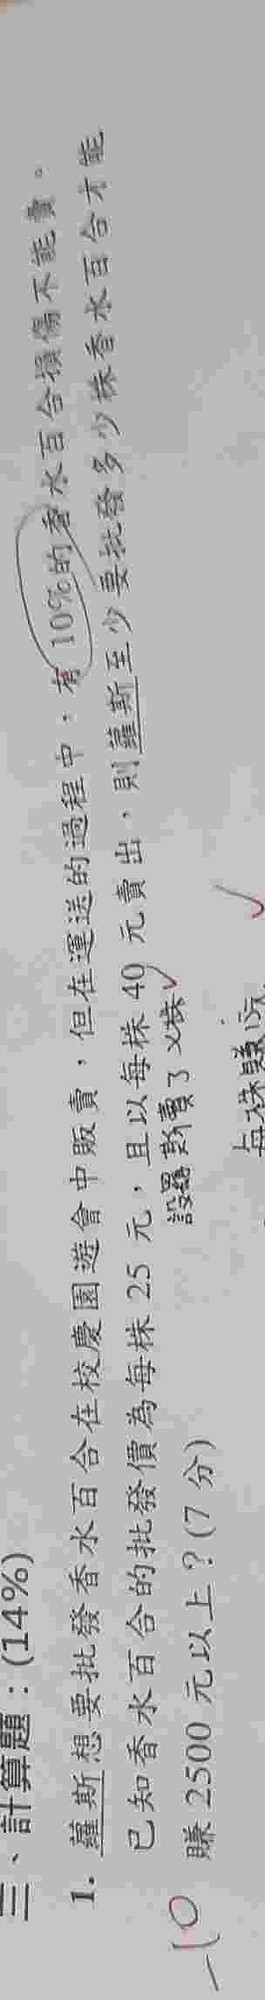 三、計算題：(14%)
1. 蘿斯想要批發香水百合在校慶園遊會中販賣，但在運送的過程中，有10%的香水百合損傷不能賣。
已知香水百合的批發價為每株 25 元，且以每株 40 元賣出，則蘿斯至少要批發多少株香水百合才能
賺 2500 元以上？(7 分)
設蘿斯賣了x株
每株賺15元
-10